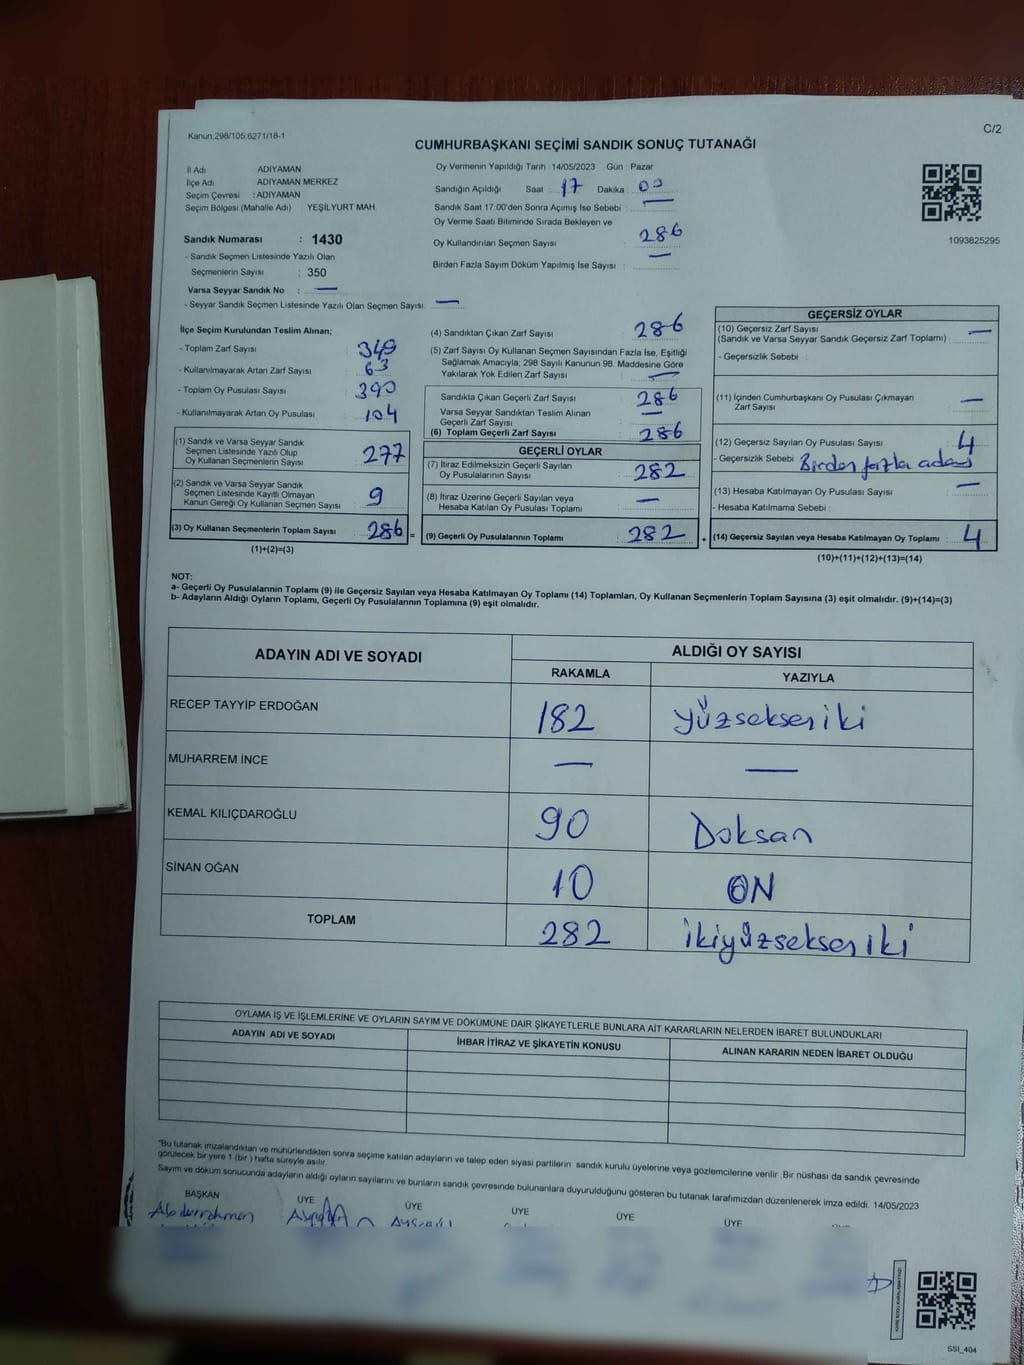 Kanun:298/105;6271/18-1
C/2
CUMHURBAŞKANI SEÇİMİ SANDIK SONUÇ TUTANAĞI
İl Adı ADIYAMAN
İlçe Adı ADIYAMAN MERKEZ
Seçim Çevresi : ADIYAMAN
Seçim Bölgesi (Mahalle Adı) YEŞİLYURT MAH.
Sandık Numarası : 1430
- Sandık Seçmen Listesinde Yazılı Olan
Seçmenlerin Sayısı : 350
Varsa Seyyar Sandık No : —
- Seyyar Sandık Seçmen Listesinde Yazılı Olan Seçmen Sayısı: —
Oy Vermenin Yapıldığı Tarih : 14/05/2023 Gün : Pazar
Sandığın Açıldığı Saat : 17 Dakika : 00
Sandık Saat 17:00'den Sonra Açımış İse Sebebi : —
Oy Verme Saati Bitiminde Sırada Bekleyen ve
Oy Kullandırılan Seçmen Sayısı : 286
Birden Fazla Sayım Döküm Yapılmış İse Sayısı : —
1093825295
İlçe Seçim Kurulundan Teslim Alınan;
- Toplam Zarf Sayısı : 349
- Kullanılmayarak Artan Zarf Sayısı : 63
- Toplam Oy Pusulası Sayısı : 390
- Kullanılmayarak Artan Oy Pusulası : 104
(1) Sandık ve Varsa Seyyar Sandık
Seçmen Listesinde Yazılı Olup
Oy Kullanan Seçmenlerin Sayısı : 277
(2) Sandık ve Varsa Seyyar Sandık
Seçmen Listesinde Kayıtlı Olmayan
Kanun Gereği Oy Kullanan Seçmen Sayısı : 9
(3) Oy Kullanan Seçmenlerin Toplam Sayısı : 286 =
(1)+(2)=(3)
(4) Sandıktan Çıkan Zarf Sayısı : 286
(5) Zarf Sayısı Oy Kullanan Seçmen Sayısından Fazla İse, Eşitliği
Sağlamak Amacıyla, 298 Sayılı Kanunun 98. Maddesine Göre
Yakılarak Yok Edilen Zarf Sayısı : —
Sandıkta Çıkan Geçerli Zarf Sayısı : 286
Varsa Seyyar Sandıktan Teslim Alınan
Geçerli Zarf Sayısı : —
(6) Toplam Geçerli Zarf Sayısı : 286
GEÇERLİ OYLAR
(7) İtiraz Edilmeksizin Geçerli Sayılan
Oy Pusulalarının Sayısı : 282
(8) İtiraz Üzerine Geçerli Sayılan veya
Hesaba Katılan Oy Pusulası Toplamı : —
(9) Geçerli Oy Pusulalarının Toplamı : 282 +
GEÇERSİZ OYLAR
(10) Geçersiz Zarf Sayısı —
(Sandık ve Varsa Seyyar Sandık Geçersiz Zarf Toplamı) :
- Geçersizlik Sebebi :
(11) İçinden Cumhurbaşkanı Oy Pusulası Çıkmayan
Zarf Sayısı : —
(12) Geçersiz Sayılan Oy Pusulası Sayısı : 4
- Geçersizlik Sebebi : Birden fazla
(13) Hesaba Katılmayan Oy Pusulası Sayısı : —
- Hesaba Katılmama Sebebi :
(14) Geçersiz Sayılan veya Hesaba Katılmayan Oy Toplamı : 4
(10)+(11)+(12)+(13)=(14)
NOT:
a- Geçerli Oy Pusulalarının Toplamı (9) ile Geçersiz Sayılan veya Hesaba Katılmayan Oy Toplamı (14) Toplamları, Oy Kullanan Seçmenlerin Toplam Sayısına (3) eşit olmalıdır. (9)+(14)=(3)
b- Adayların Aldığı Oyların Toplamı, Geçerli Oy Pusulalarının Toplamına (9) eşit olmalıdır.
ADAYIN ADI VE SOYADI ALDIĞI OY SAYISI
RAKAMLA YAZIYLA
RECEP TAYYİP ERDOĞAN 182 yüzseksen iki
MUHARREM İNCE — —
KEMAL KILIÇDAROĞLU 90 Doksan
SİNAN OĞAN 10 ON
TOPLAM 282 ikiyüzseksen iki
OYLAMA İŞ VE İŞLEMLERİNE VE OYLARIN SAYIM VE DÖKÜMÜNE DAİR ŞİKAYETLERLE BUNLARA AİT KARARLARIN NELERDEN İBARET BULUNDUKLARI
ADAYIN ADI VE SOYADI İHBAR İTİRAZ VE ŞİKAYETİN KONUSU ALINAN KARARIN NEDEN İBARET OLDUĞU
"Bu tutanak imzalandıktan ve mühürlendikten sonra seçime katılan adayların ve talep eden siyasi partilerin sandık kurulu üyelerine veya gözlemcilerine verilir. Bir nüshası da sandık çevresinde
görülecek bir yere 1 (bir) hafta süreyle asılır.
Sayım ve döküm sonucunda adayların aldığı oyların sayılarını ve bunların sandık çevresinde bulunanlara duyurulduğunu gösteren bu tutanak tarafımızdan düzenlenerek imza edildi. 14/05/2023
BAŞKAN ÜYE ÜYE ÜYE ÜYE ÜYE
Abdurrahman
SSI_404